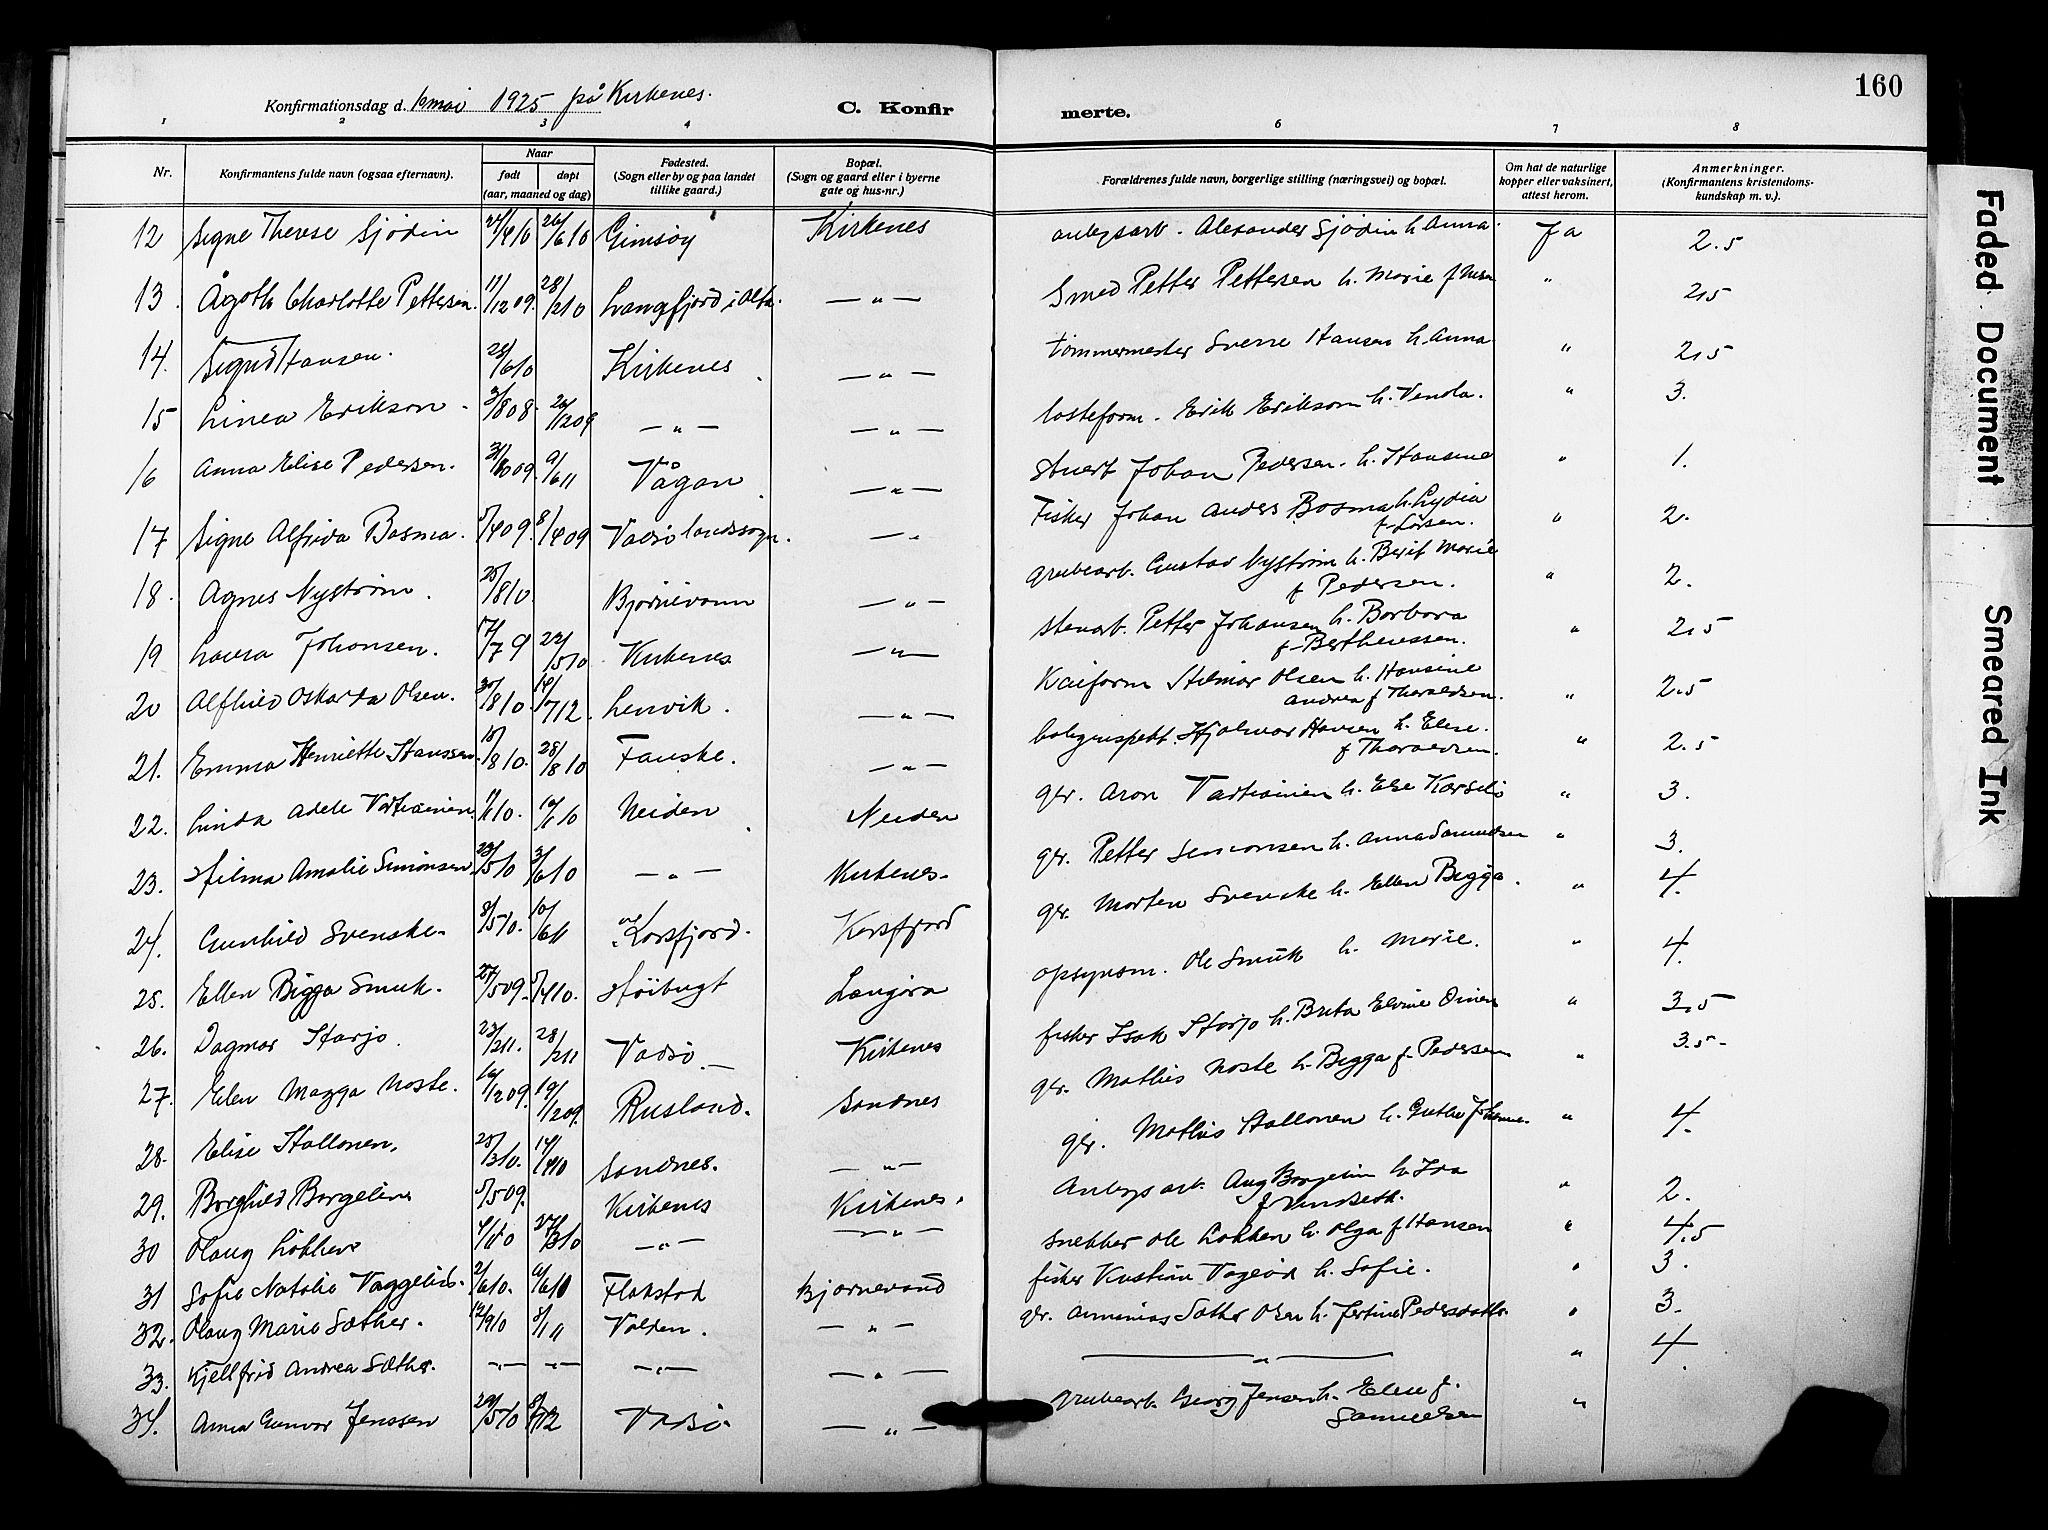 160
Konfirmationsdag d. mai 1925 på Kirkenes.
C. Konfirmerte.
1 2 3 4 6 7 8
Nr.
Konfirmantens fulde navn (ogsaa efternavn).
Naar
født døpt
(aar, maaned og dag)
Fødested.
(Sogn eller by og paa landet
tillike gaard.)
Bopæl.
(Sogn og gaard eller i byerne
gate og hus-nr.)
Forældrenes fulde navn, borgerlige stilling (næringsvei) og bopæl.
Om hat de naturlige
kopper eller vaksinert,
attest herom.
Anmerkninger.
(Konfirmantens kristendoms-
kundskap m. v.)
12 Signe Therese Sjödin 26/6 10 Gimsøy Kirkenes Alexander Sjödin h. Anna Ja 2.5
13. Ågoth Charlotte Pettersen 11/12 09. 28/2 10 Langfjord i Alta — " — Smed Petter Pettersen h. Marie f. " 2,5
14. Signe Hansen. 28/6 10 Kirkenes — " — tømmermester Sverre Hansen h. Anna " 2,5
15 Linea Erikson 3/8 08. 26/12 09 — " — — " — lasteform. Erik Erikson h. Venda. " 3.
16 Anna Elise Pedersen. 31/10 09. 9/6 11 Vågan — " — stuert Johan Pedersen. h. Hansine " 1.
17 Signe Alfrida Bosma. 5/4 09. 8/4 09 Vadsø landssogn. — " Fisker Johan Anders Bosma h. Lydia
f. Larsen. " 2.
18. Agnes Nystrøm. 25/8 10. Bjørnevann — " — grubearb. Gustav Nystrøm h. Berit Marie
f. Pedersen. " 2.
19 Laura Johansen. 17/7 9 22/5 10 Kirkenes — " — stenarb. Petter Johansen h. Barbara
f. Bertheussen. " 2,5
20 Alfhild Oskarda Olsen. 30/8 10. 14/7 12. Lenvik. — " — Kaiform Hilmar Olsen h. Hansine
Andrea f. Thoraldsen. " 2.5
21. Emma Henriette Hanssen. 18/8 10. 28/8 10 Fauske. — " — Hjalmar Hansen h. Elise.
f. Thoraldsen. " 2.5
22. Linda Adele Vartiainen 10/6 10 Neiden Neiden gbr. Aron Vartiainen h. Else " 3.
23. Hilma Amalie Simonsen 23/5 10 3/6 10 — " — Kirkenes. gbr. Petter Simonsen h. Anna Samuelsen " 3.
24. Gunhild Svenske. 8/5 10. 10/6 11 Korsfjord. Korsfjord gbr. Morten Svenske h. Ellen Bigga. " 4.
25. Ellen Bigga Smuk. 27/5 09. 5/4 10. Høibugt Langøra opsynsm. Ole Smuk h. Marie. " 4.
26. Dagmar Harjo. 23/2 11. 28/2 11 Vadsø. — Kirkenes fisker Isak Harjo h. Brita Elvine " 3.5
27. Elen Magga Noste. 16/12 09. 19/12 09. Rusland. Sandnes gbr. Mathis Noste h. Bigga f. Pedersen " 3.5-
28. Elise Hallonen. 25/3 10. 14/4 10 Sandnes. — " — gbr. Mathis Hallonen h. " 4.
29. Borghild Borgelin 5/5 09. Kirkenes Kirkenes. Anlegsarb. Aug Borgelin h. Ida
f. " 2.
30 Olaug Løkken 27/3 10 — " — — " — snekker Ole Løkken h. Olga f. Hansen " 4.5
31 Sofie Natalie 2/6 10. 6/6 10 Flakstad Bjørnevand fisker Kristian h. Sofie. " 3.
32. Olaug Marie Sæther. 17/9 10 8/1 11 Volden. — " — gbr. Sæther Olsen h. Jertine Pedersdatter " 3.
33. Kjellfrid Andrea Sæther. — " — — " — — " — — " — — " — " 4.
34. Anna Gunvor Jenssen 29/5 10 Vadsø — " — Grubearb. Georg Jensen h. Elise f.
Samuelsen "
Faded Document
Smeared Ink